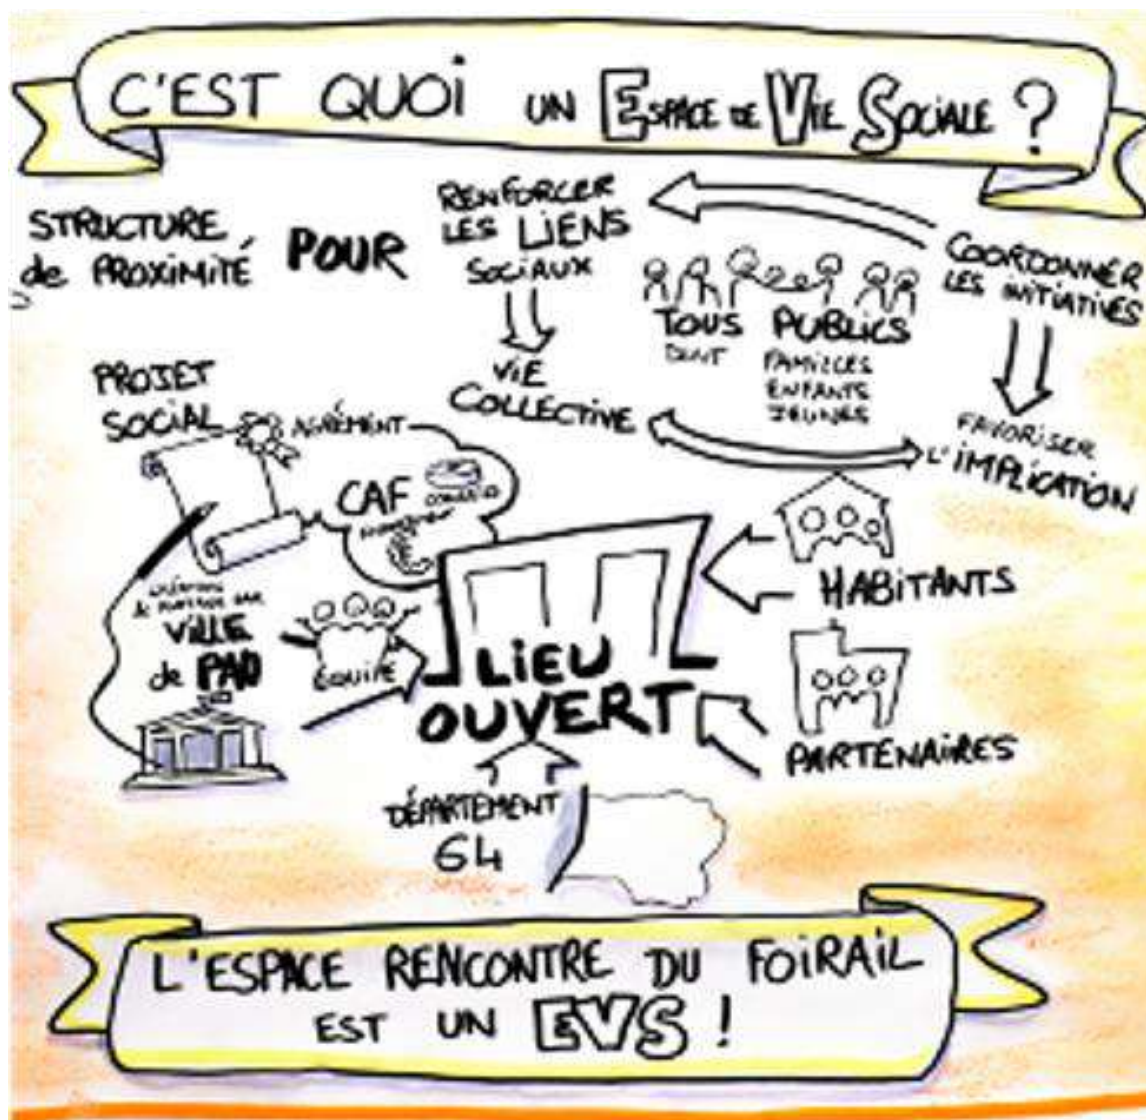 C'EST QUOI UN ESPACE DE VIE SOCIALE ?
STRUCTURE
de PROXIMITÉ
POUR
RENFORCER
LES LIENS
SOCIAUX
COORDONNER
LES INITIATIVES
TOUS PUBLICS
DONT FAMILLES
ENFANTS
JEUNES
VIE
COLLECTIVE
FAVORISER
L'IMPLICATION
PROJET
SOCIAL
AGRÉMENT
CAF
VILLE
de PAU
ÉQUIPE
LIEU
OUVERT
HABITANTS
PARTENAIRES
DÉPARTEMENT
64
L'ESPACE RENCONTRE DU FOIRAIL
EST UN EVS !